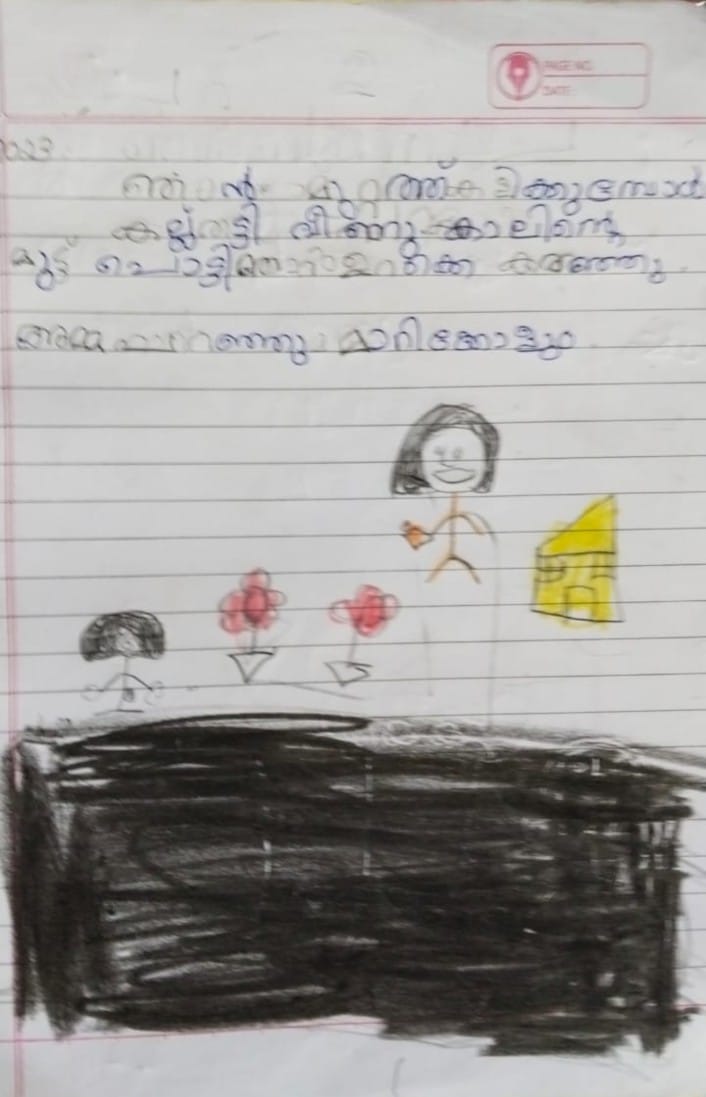 PAGE NO.
DATE:
2023
ഞാൻ മുറ്റത്ത് കളിക്കുമ്പോൾ
കല്ല് തട്ടി വീണു കാലിന്റെ
മുട്ട് പൊട്ടി ഞാൻ ഉറക്കെ കരഞ്ഞു.
അമ്മ പറഞ്ഞു മാറിക്കോളും